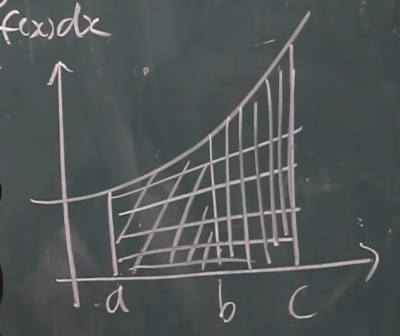 f(x)dx
a b c